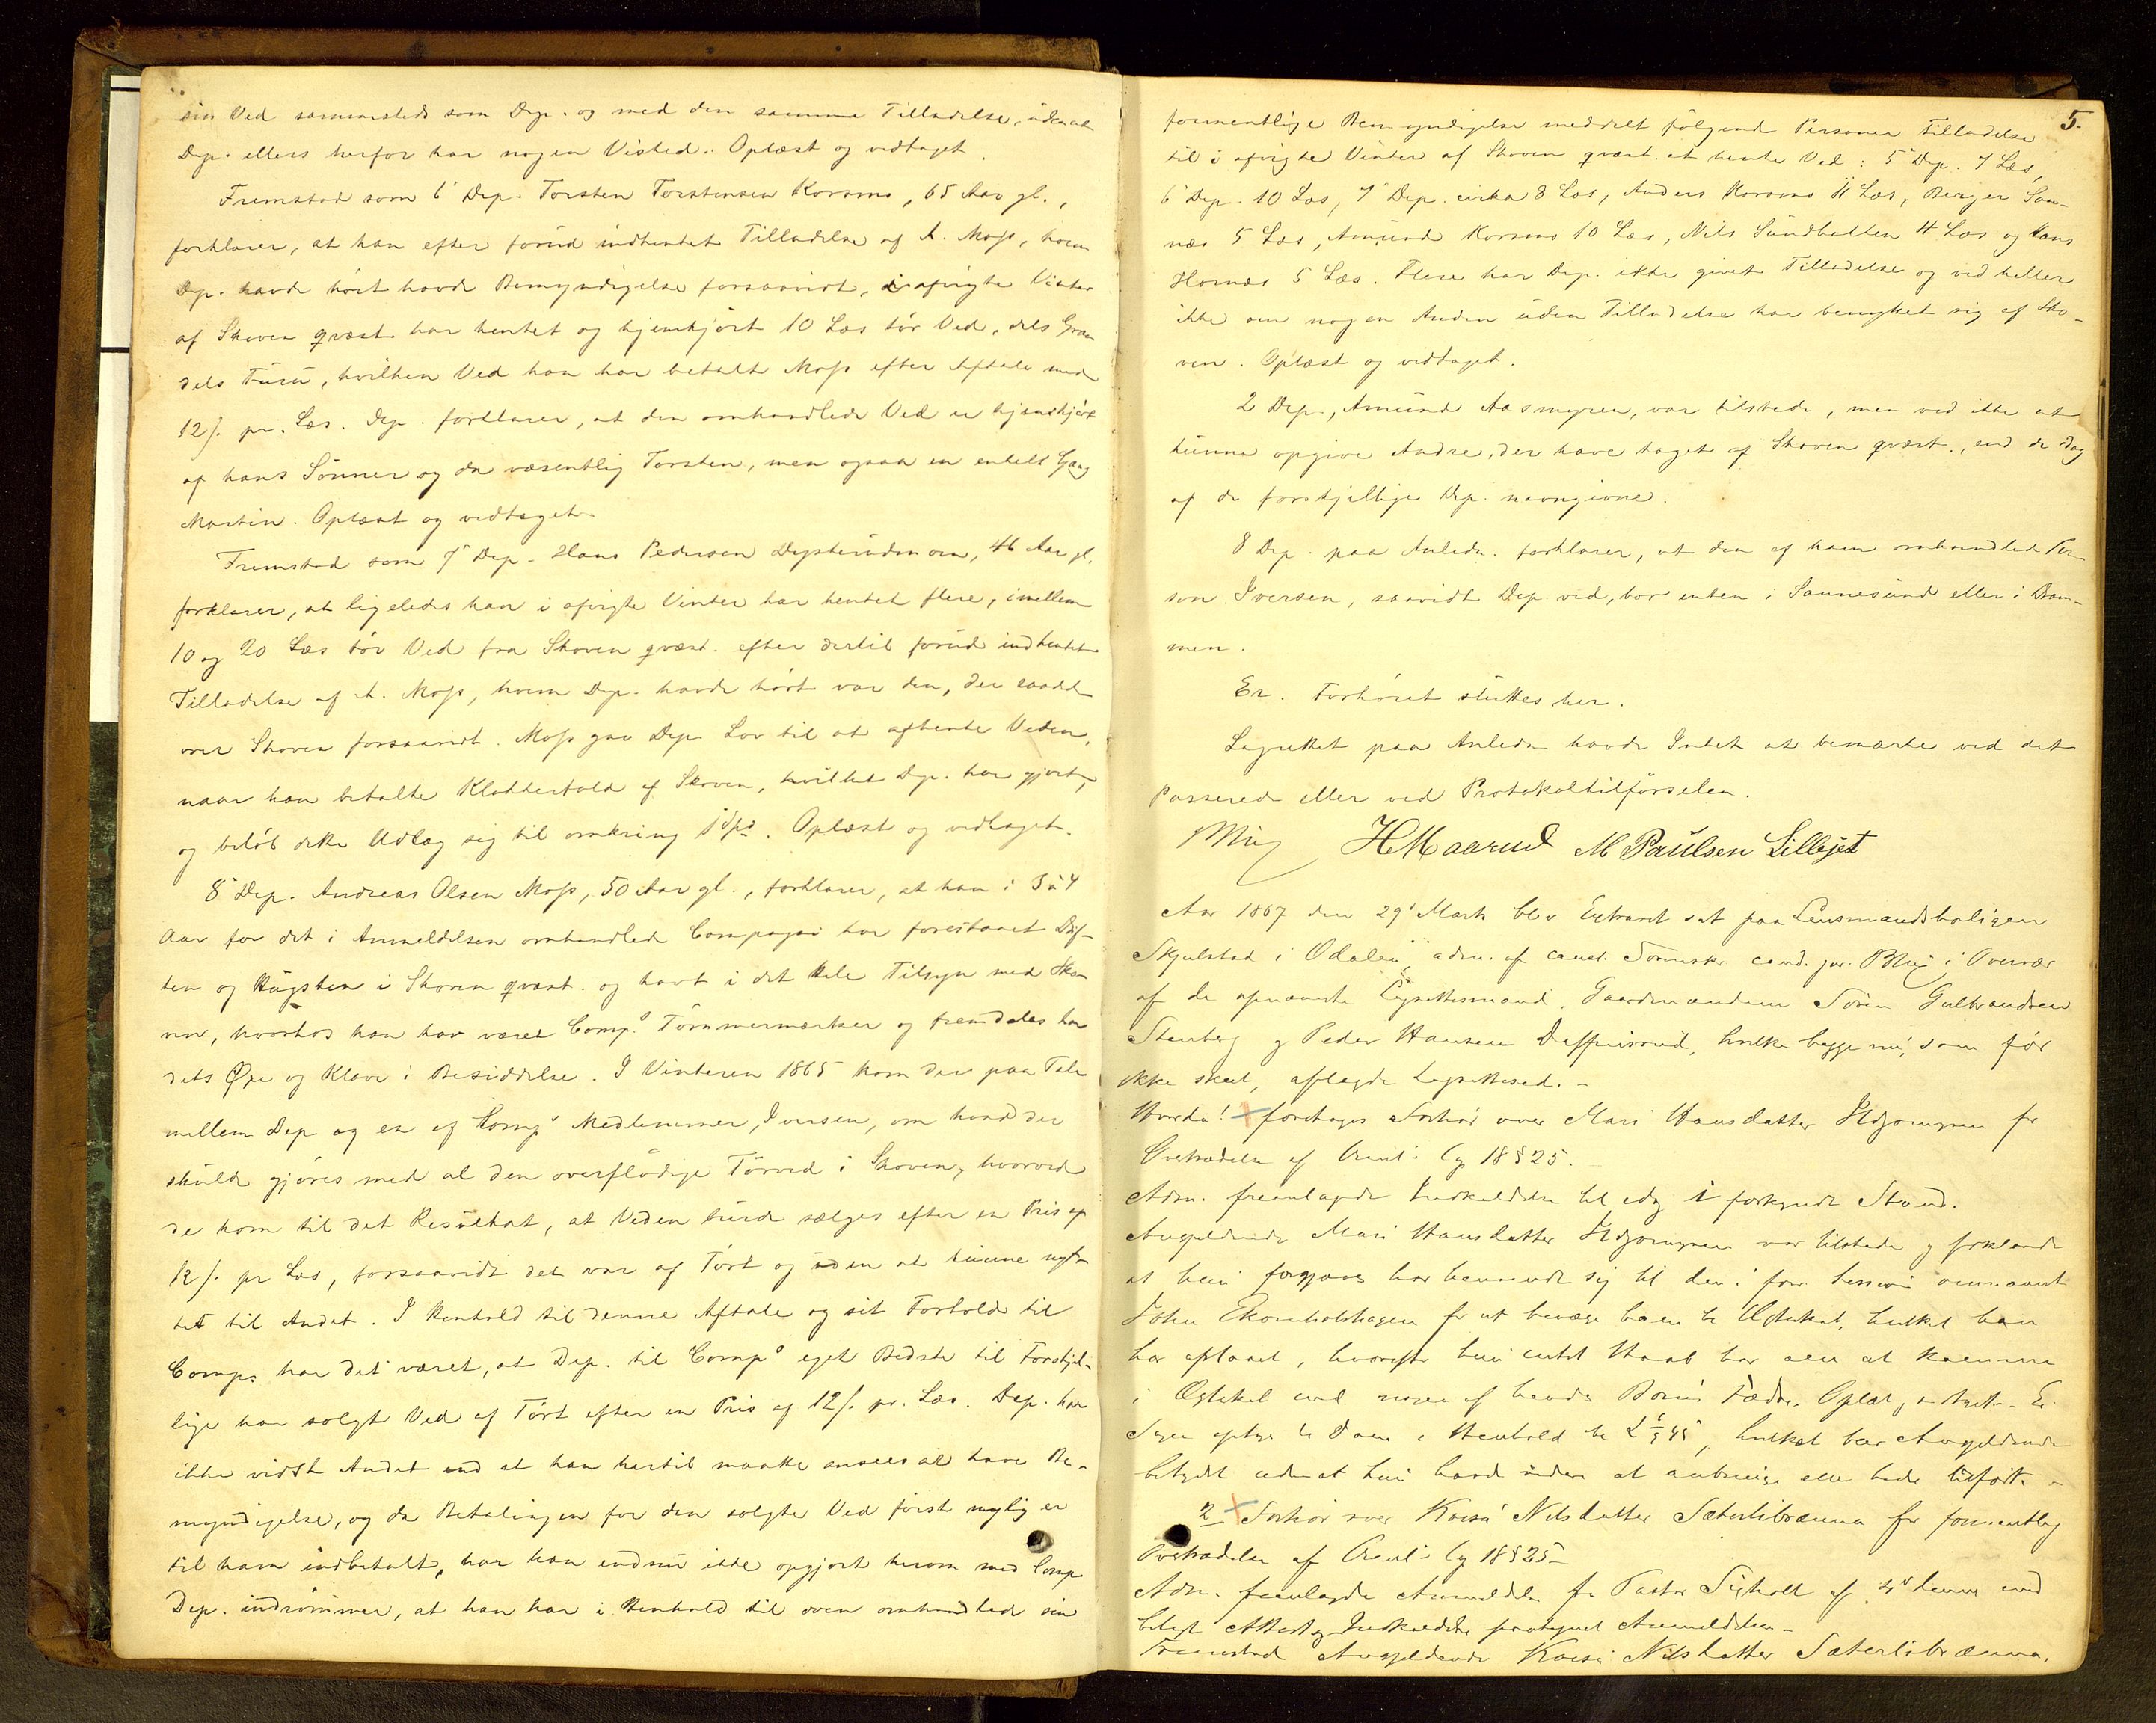 sin Ved sammesteds som Dep. og med den samme Tilladelse, uden at
Dep. ellers herfor har nogen Visshed. Oplæst og vedtaget.
Fremstod som 6' Dep. Torsten Torstensen Korsmo, 65 Aar gl.,
forklarer, at han efter forud indhentet Tilladelse af A. Moss, hvem
Dep. havde hørt havde Bemyndigelse forsaavidt, i afvigte Vinter
af Skoven qvæst. har hentet og hjemkjørt 10 Læs tør Ved, dels Gran
dels Furu, hvilken Ved han har betalt Moss efter Aftale med
12 ſ. pr. Læs. Dep. forklarer, at den omhandlede Ved er hjemkjørt
af hans Sønner og da væsentlig Torsten, men ogsaa en enkelt Gang
Martin. Oplæst og vedtaget.
Fremstod som 7' Dep. Hans Pedersen, 46 Aar gl.
forklarer, at ligeledes han i afvigte Vinter har hentet flere, imellem
10 og 20 Læs tør Ved fra Skoven qvæst. efter dertil forud indhentet
Tilladelse af A. Moss, hvem Dep. havde hørt var den, der raadde
over Skoven forsaavidt. Moss gav Dep. Lov til at afhente Veden,
naar han betalte Klokkertold af Skoven, hvilket Dep. har gjort,
og beløb dette Udlæg sig til omkring 1 Spd. Oplæst og vedtaget.
8' Dep. Andreas Olsen Moss, 50 Aar gl., forklarer, at han i 3 a 4
Aar for det i Anmeldelsen omhandlede Compagni har forestaaet Drif-
ten og Hugsten i Skoven qvæst. og havt i det Hele Tilsyn med Sko-
ven, hvorhos han har været Comp.s Tømmermærker og fremdeles har
dets Øxe og Klave i Besiddelse. I Vinteren 1865 kom der paa Tale
mellem Dep. og en af Comp.s Medlemmer, Iversen, om hvad der
skulde gjøres med al den overflødige Tørved i Skoven, hvorved
de kom til det Resultat, at Veden burde sælges efter en Pris af
12 ſ. pr Læs, forsaavidt det var af Tørt og uden at kunne nyt-
tet til Andet. I Henhold til denne Aftale og sit Forhold til
Comp. har det været, at Dep. til Comp.s eget Bedste til Forskjel-
lige har solgt Ved af Tørt efter en Pris af 12 ſ. pr. Læs. Dep. har
ikke vidst Andet end at han hertil maatte ansees at have Be-
myndigelse, og da Betalingen for den solgte Ved først nylig er
til ham indbetalt, har han endnu ikke opgjort herom med Comp.
Dep. indrømmer, at han har i Henhold til oven omhandlede sin
5.
formentlige Bemyndigelse meddelt følgende Personer Tilladelse
til i afvigte Vinter af Skoven qvæst. at hente Ved: 5' Dep. 7 Læs,
6' Dep. 10 Læs, 7' Dep. cirka 8 Læs, Anders Korsmo 11 Læs, Berger San-
næs 5 Læs, Amund Korsmo 10 Læs, Nils Sundbakken 4 Læs og Hans
Hornæs 5 Læs. Flere har Dep. ikke givet Tilladelse og ved heller
ikke om nogen Anden uden Tilladelse har benyttet sig af Sko-
ven. Oplæst og vedtaget.
2 Dep., Amund Aasmyren, var tilstede, men ved ikke at
kunne opgive Andre, der have taget af Skoven qvæst., end de idag
af de forskjellige Dep. navngivne.
8 Dep. paa Anledn. forklarer, at den af ham omhandlede Per-
son Iversen, saavidt Dep. ved, bor enten i Sannesund eller i Dram-
men.
Er. Forhøret sluttes her.
Lagrettet paa Anledn. havde Intet at bemærke ved det
Passerede eller ved Protokoltilførselen.
H Maarud M Paulsen Lillejet
Aar 1867 den 29' Marts blev Extraret sat paa Lensmandsboligen
Skulstad i Odalen, adm. af const. Sorenskr. cand. jur. i Overvær
af de opnævnte Lagrettesmænd, Gaardmændene Søren Gulbrandsen
Stenberg og Peder Hansen, hvilke begge nu, som før
ikke skeet, aflagde Lagrettesed.-
Hvorda! foretoges Forhør over Mari Hansdatter for
Overtrædelse af Criml. Lov 18 § 25.
Adm. fremlagde Indkaldelse til idag i forkyndt Stand.
Angjeldende Mari Hansdatter var tilstede og forklarede
at hun forgjæves har henvendt sig til den i forr. Session omnævnt
John for at bevæge ham til Ægteskab, hvilket han
har afslaaet, hvorefter hun intet Haab har om at komme
i Ægteskab med nogen af hendes Børns Fædre. Oplæst, vedtaget. Er.
Sagen optages til Doms i Henhold til L 6/9 45, hvilket blev Angjeldende
betydet uden at hun havde videre at anbringe eller bede tilført.-
2 Forhør over Kaisa Nilsdatter Sæterlibrænna for formentlig
Overtrædelse af Criml. Lov 18 § 25-
Adm. fremlagde Anmeldelse fra Pastor Sigholt af ds denne med
bilagt Attest og Indkaldelse paategnet Anmeldelsen-
Fremstod Angjeldende Kaisa Nilsdatter Sæterlibrænna.